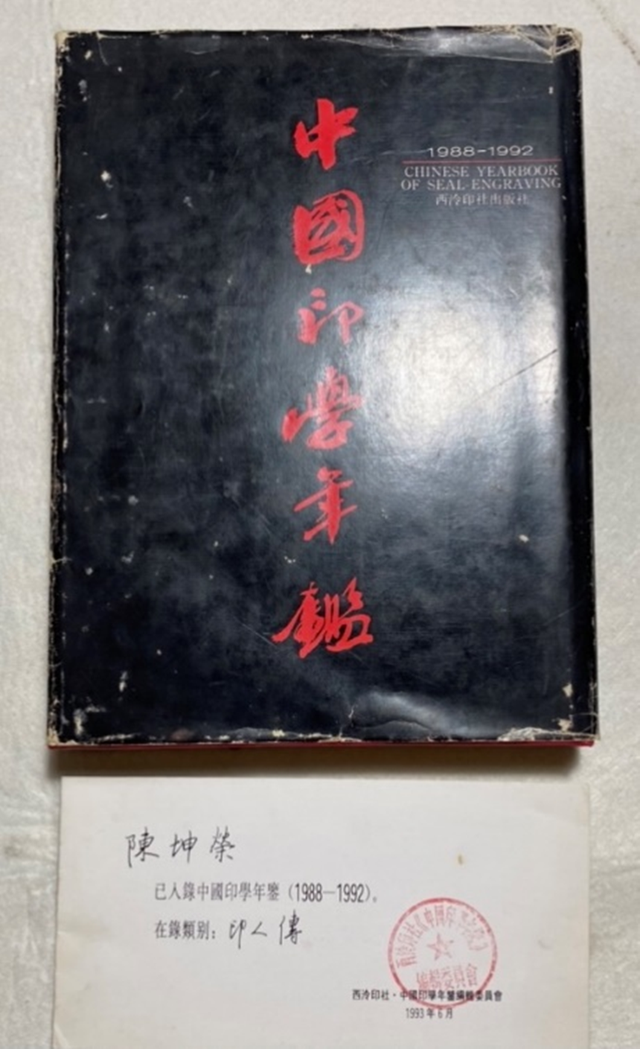 中國印學年鑑
1988-1992
CHINESE YEARBOOK
OF SEAL-ENGRAVING
西泠印社出版社
陳坤榮
已入錄中國印學年鑒(1988—1992)。
在錄類别：印人傳
編輯委員會
西泠印社·中國印學年鑒編輯委員會
1993年6月